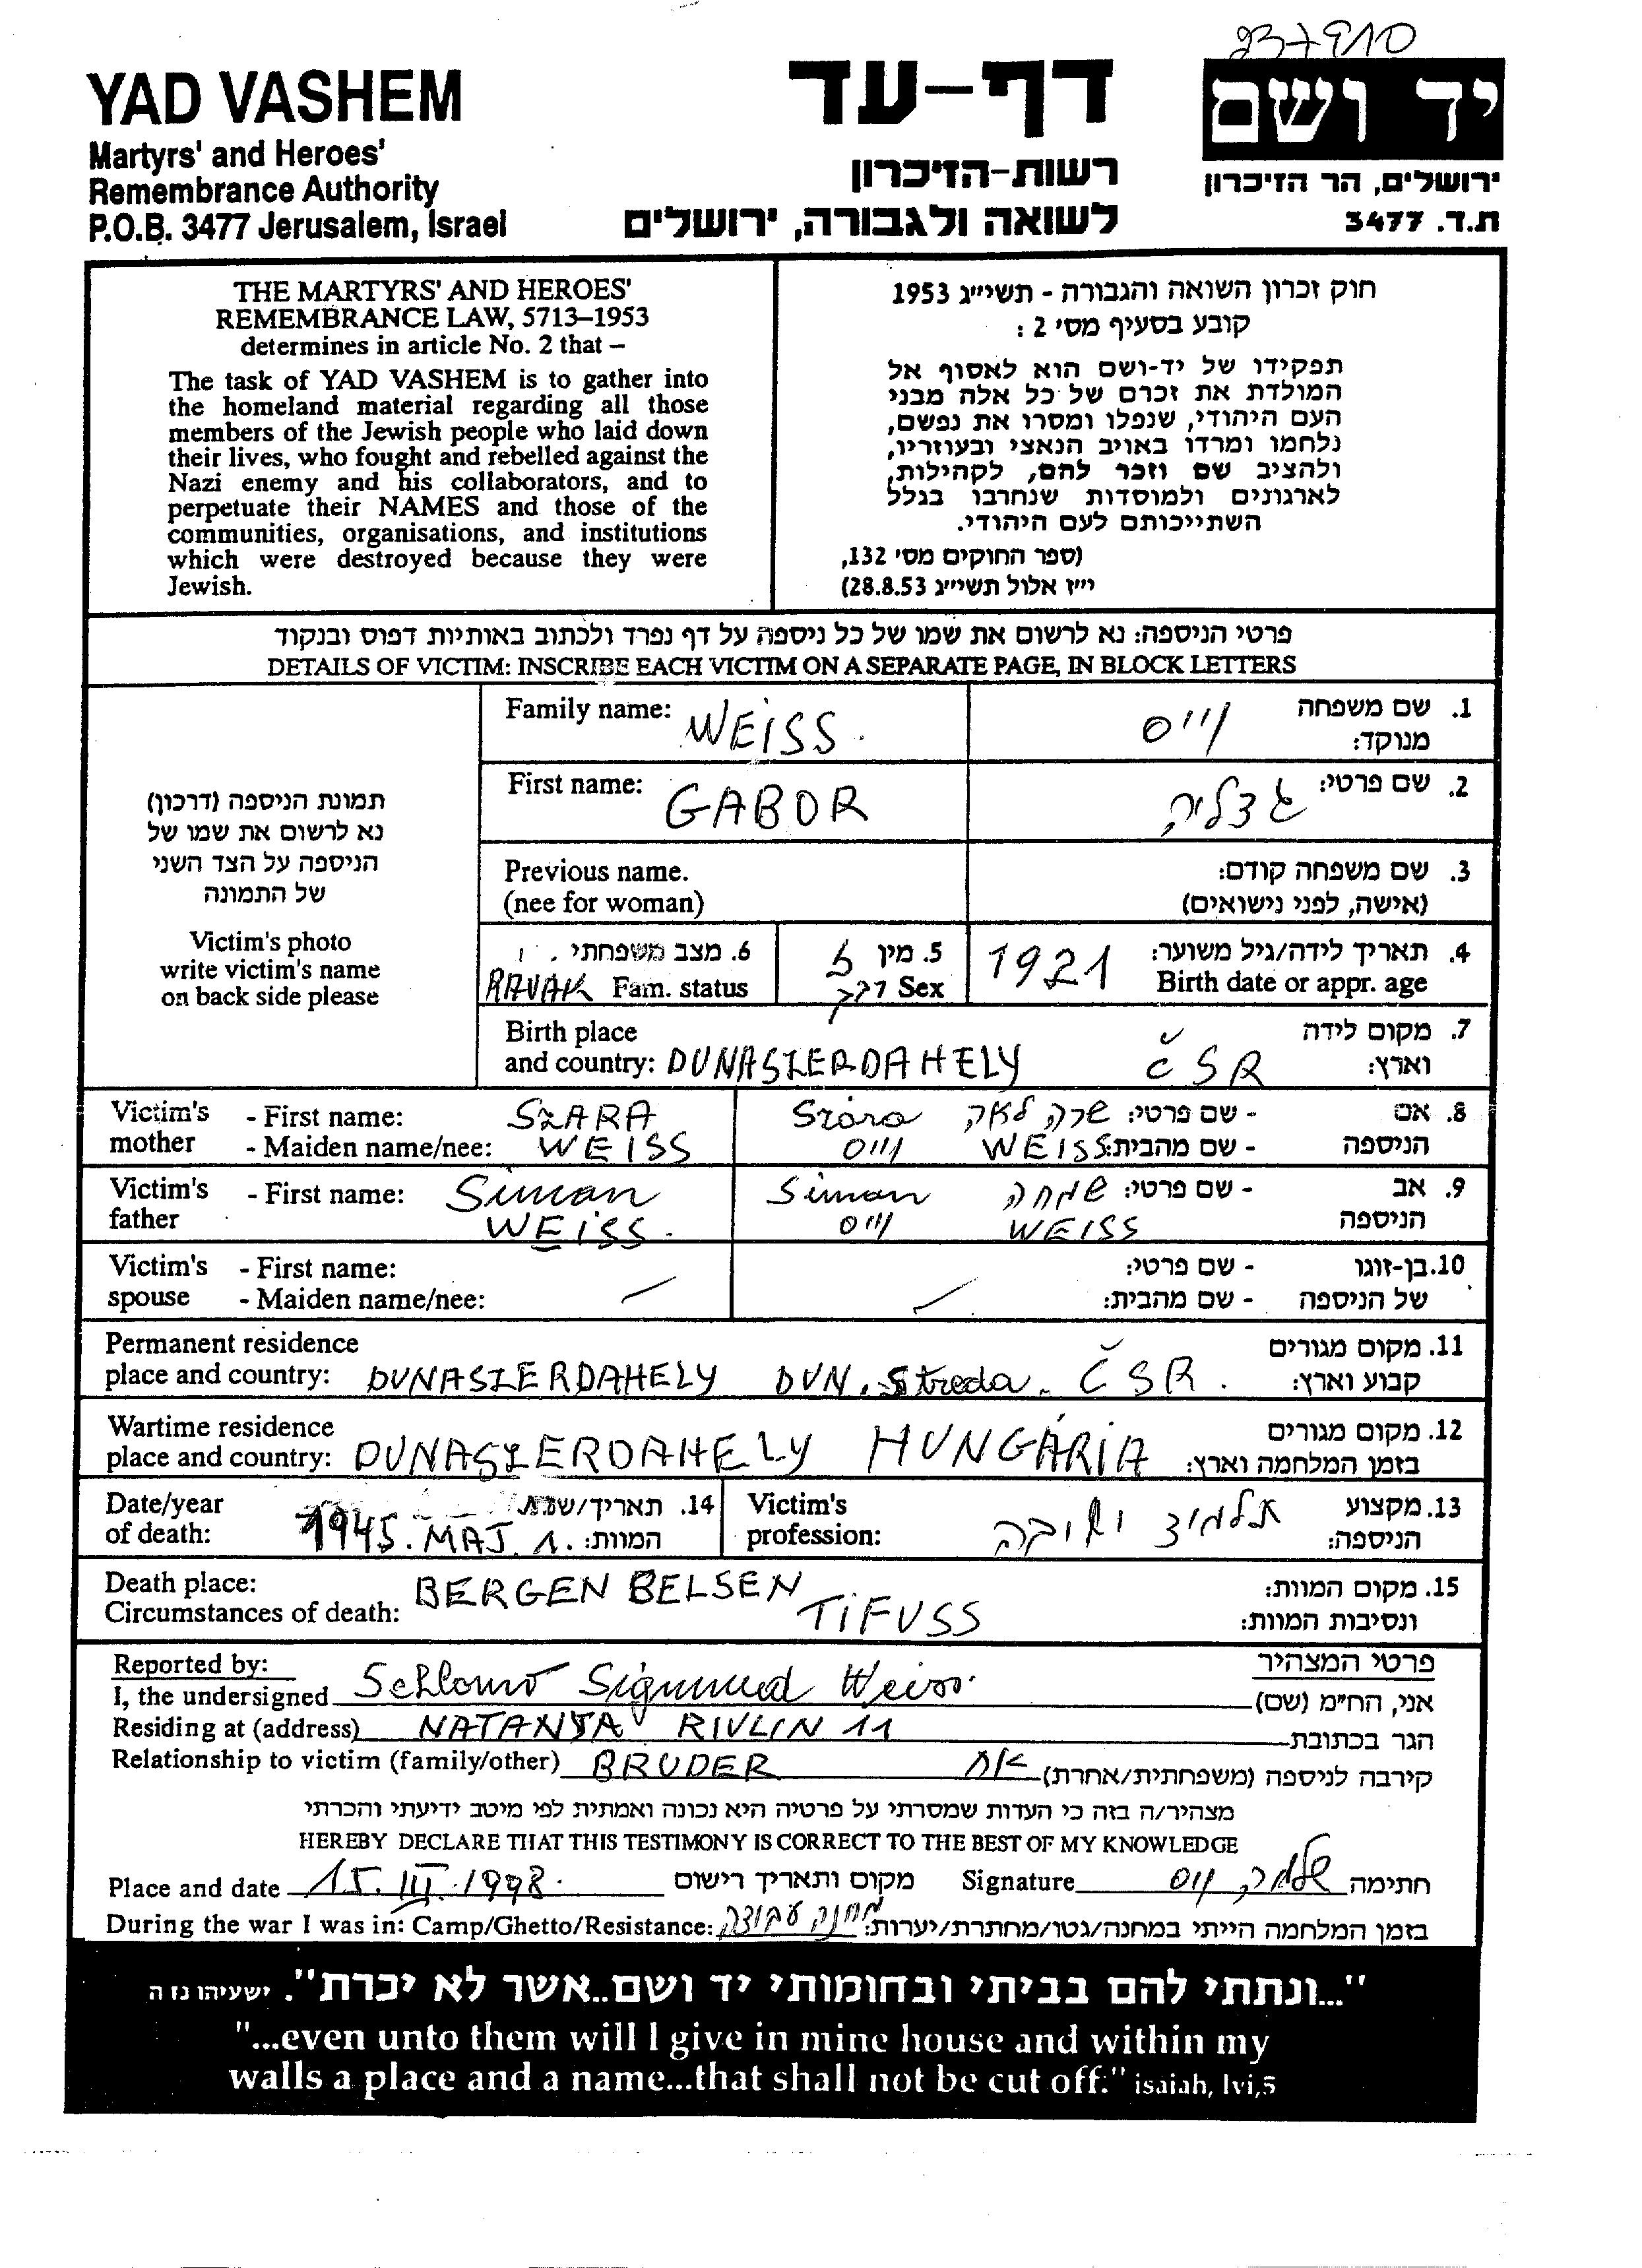 237910
YAD VASHEM
Martyrs' and Heroes'
Remembrance Authority
P.O.B. 3477 Jerusalem, Israel
דף-עד
רשות-הזיכרון
לשואה ולגבורה, ירושלים
יד ושם
ירושלים, הר הזיכרון
ת.ד. 3477
THE MARTYRS' AND HEROES'
REMEMBRANCE LAW, 5713–1953
determines in article No. 2 that –
The task of YAD VASHEM is to gather into
the homeland material regarding all those
members of the Jewish people who laid down
their lives, who fought and rebelled against the
Nazi enemy and his collaborators, and to
perpetuate their NAMES and those of the
communities, organisations, and institutions
which were destroyed because they were
Jewish.
חוק זכרון השואה והגבורה - תשי״ג 1953
קובע בסעיף מס׳ 2 :
תפקידו של יד-ושם הוא לאסוף אל
המולדת את זכרם של כל אלה מבני
העם היהודי, שנפלו ומסרו את נפשם,
נלחמו ומרדו באויב הנאצי ובעוזריו,
ולהציב שם וזכר להם, לקהילות,
לארגונים ולמוסדות שנחרבו בגלל
השתייכותם לעם היהודי.
(ספר החוקים מס׳ 132,
י״ז אלול תשי״ג 28.8.53)
פרטי הניספה: נא לרשום את שמו של כל ניספה על דף נפרד ולכתוב באותיות דפוס ובנקוד
DETAILS OF VICTIM: INSCRIBE EACH VICTIM ON A SEPARATE PAGE, IN BLOCK LETTERS
תמונת הניספה (דרכון)
נא לרשום את שמו של
הניספה על הצד השני
של התמונה
Victim's photo
write victim's name
on back side please
Family name: WEISS. וייס 1. שם משפחה
מנוקד:
First name: GABOR גדליה 2. שם פרטי:
Previous name. 3. שם משפחה קודם:
(nee for woman) (אישה, לפני נישואים)
6. מצב משפחתי 5. מין 1921 4. תאריך לידה/גיל משוער:
RAVAK Fam. status זכר Sex Birth date or appr. age
Birth place 7. מקום לידה
and country: DUNASZERDAHELY ČSR וארץ:
Victim's - First name: SZARA Szára שרה לאה - שם פרטי: 8. אם
mother - Maiden name/nee: WEISS וייס WEISS - שם מהבית: הניספה
Victim's - First name: Siman Siman שמחה - שם פרטי: 9. אב
father WEISS. וייס WEISS הניספה
Victim's - First name: - שם פרטי: 10. בן-זוגו
spouse - Maiden name/nee: - שם מהבית: של הניספה
Permanent residence 11. מקום מגורים
place and country: DUNASZERDAHELY DUN. Streda. ČSR. קבוע וארץ:
Wartime residence 12. מקום מגורים
place and country: DUNASZERDAHELY HUNGÁRIA בזמן המלחמה וארץ:
Date/year 14. תאריך/שנת Victim's 13. מקצוע
of death: 1945. MAJ. 1. המוות: profession: תלמיד ישיבה הניספה:
Death place: BERGEN BELSEN 15. מקום המוות:
Circumstances of death: TIFUSS ונסיבות המוות:
Reported by: פרטי המצהיר
I, the undersigned Schlomo Sigmund Weiss. אני, הח״מ (שם)
Residing at (address) NATANJA RIVLIN 11 הגר בכתובת
Relationship to victim (family/other) BRUDER אח קירבה לניספה (משפחתית/אחרת)
מצהיר/ה בזה כי העדות שמסרתי על פרטיה היא נכונה ואמתית לפי מיטב ידיעתי והכרתי
HEREBY DECLARE THAT THIS TESTIMONY IS CORRECT TO THE BEST OF MY KNOWLEDGE
Place and date 15. III. 1998. מקום ותאריך רישום Signature שלמה וייס חתימה
During the war I was in: Camp/Ghetto/Resistance: מחנה עבודה בזמן המלחמה הייתי במחנה/גטו/מחתרת/יערות:
"...ונתתי להם בביתי ובחומותי יד ושם..אשר לא יכרת". ישעיהו נז ה
"...even unto them will I give in mine house and within my
walls a place and a name...that shall not be cut off." isaiah, lvi,5